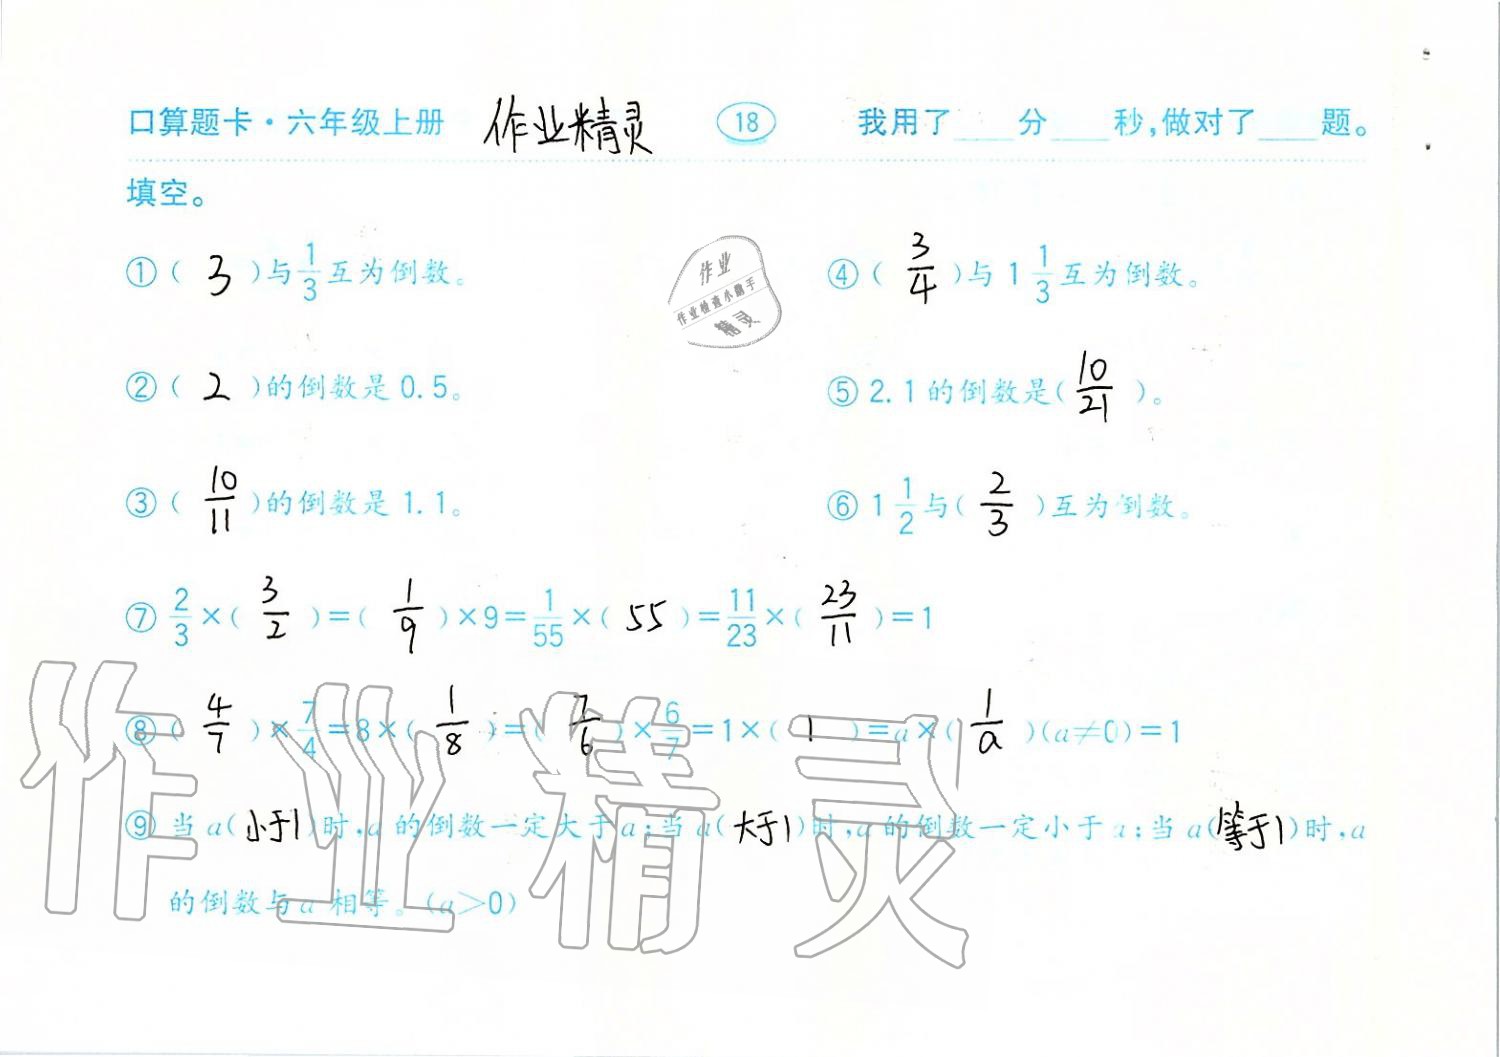 口算题卡·六年级上册 作业精灵 18 我用了____分____秒,做对了____题。
填空。
①( 3 )与1/3互为倒数。 ④( 3/4 )与1 1/3互为倒数。
作业
作业检查小助手
精灵
②( 2 )的倒数是0.5。 ⑤2.1的倒数是( 10/21 )。
③( 10/11 )的倒数是1.1。 ⑥1 1/2与( 2/3 )互为倒数。
⑦2/3×( 3/2 )=( 1/9 )×9=1/55×( 55 )=11/23×( 23/11 )=1
⑧( 4/7 )×7/4=8×( 1/8 )=( 7/6 )×6/7=1×( 1 )=a×( 1/a )(a≠0)=1
⑨当a(小于1)时,a的倒数一定大于a;当a(大于1)时,a的倒数一定小于a;当a(等于1)时,a
的倒数与a相等。(a>0)
作业精灵